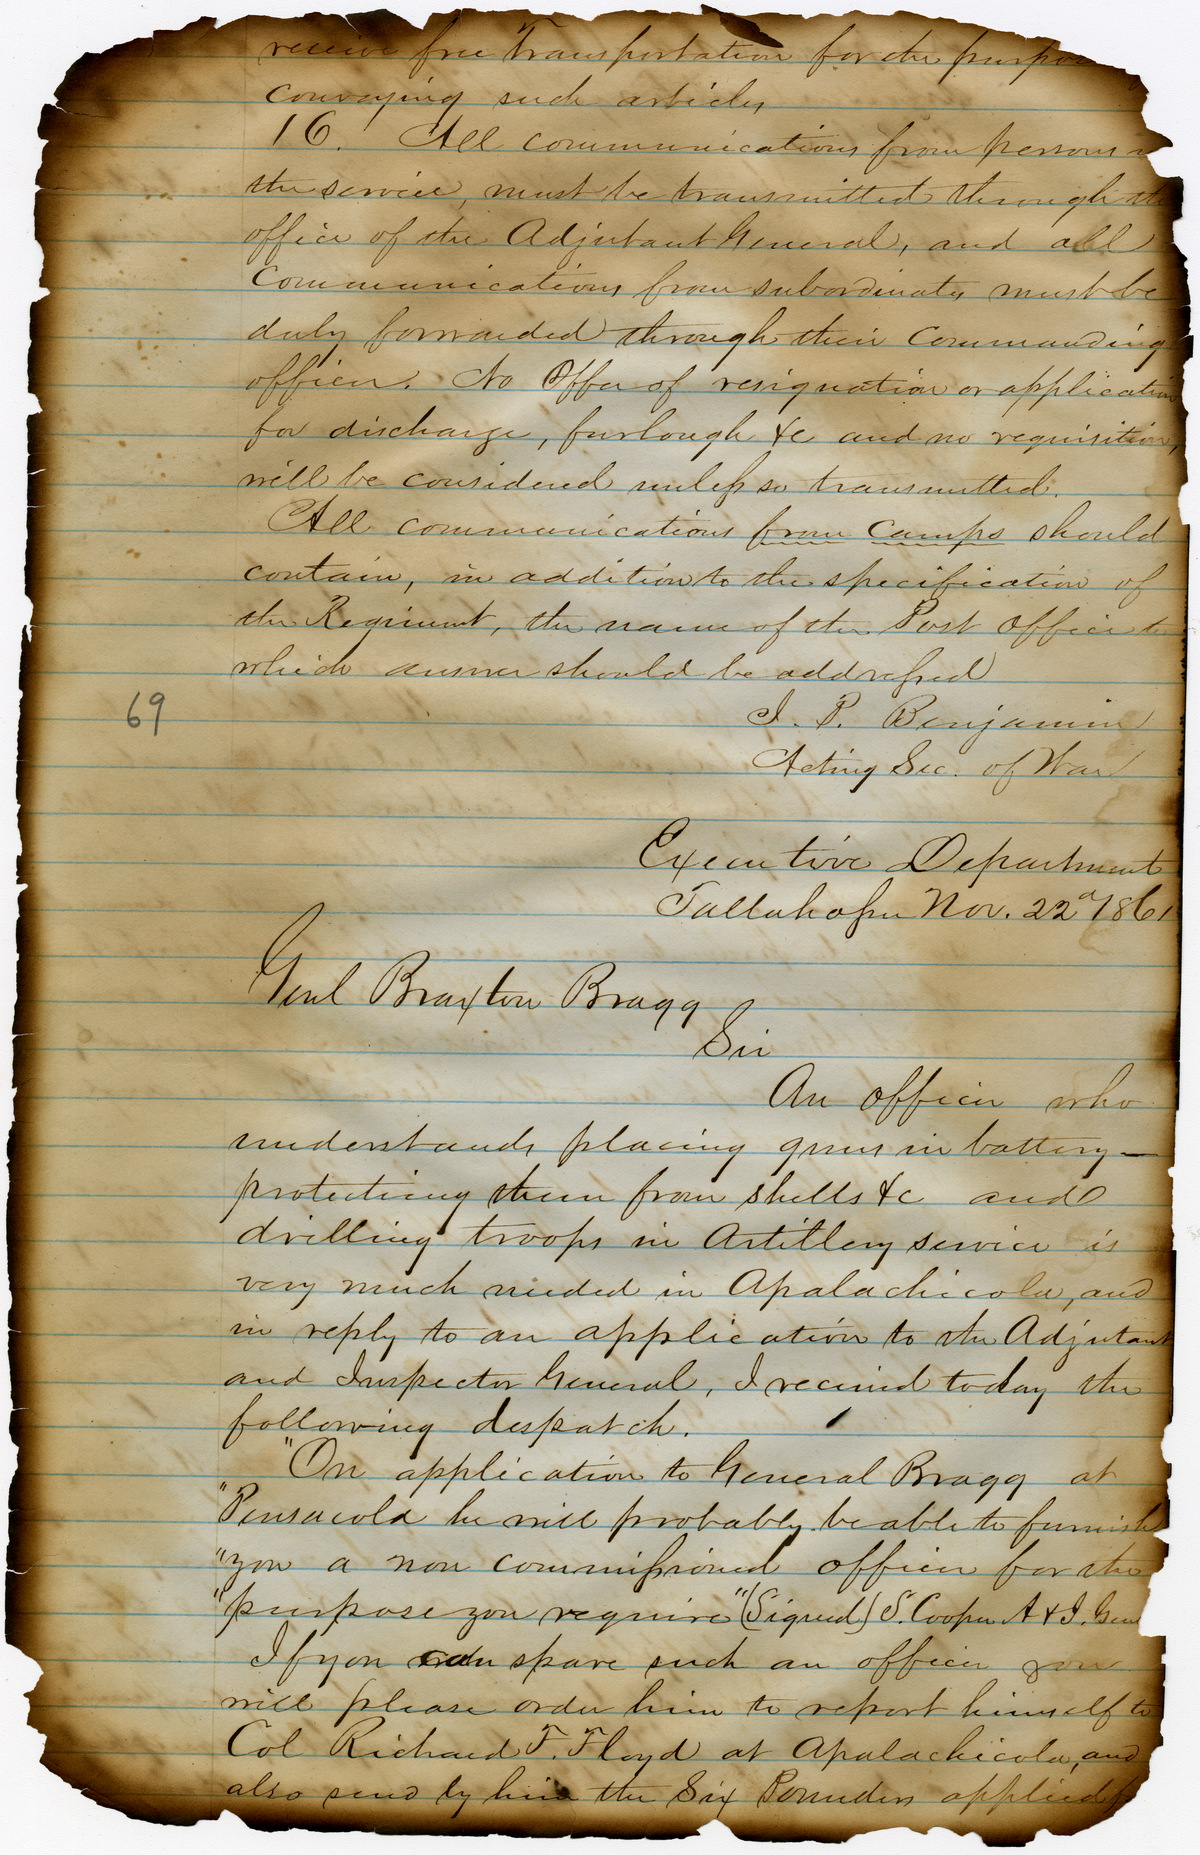 receive free transportation for the purpo
conveying such articles
16. All communications from persons in
the service, must be transmitted through the
office of the Adjutant General, and all
communications from subordinates must be
duly forwarded through their commanding
officer. No Offer of resignation or application
for discharge, furlough &c and no requisition,
will be considered unless so transmitted.
All communications from camps should
contain, in addition to the specification of
the Regiment, the name of the Post Office to
which answer should be addressed
J. P. Benjamin
Acting Sec. of War
69
Executive Department
Tallahassee Nov. 22d 1861
Genl Braxton Bragg
Sir
An officer who
understands placing guns in battery—
protecting them from shells &c and
drilling troops in Artillery service is
very much needed in Apalachicola, and
in reply to an application to the Adjutant
and Inspector General, I received today the
following despatch.
"On application to General Bragg at
"Pensacola he will probably be able to furnish
"you a non commissioned officer for the
"purpose you require" (Signed) S. Cooper A & I. Genl
If you can spare such an officer you
will please order him to report himself to
Col Richard F. Floyd at Apalachicola, and
also send by him the Six Pounders applied f